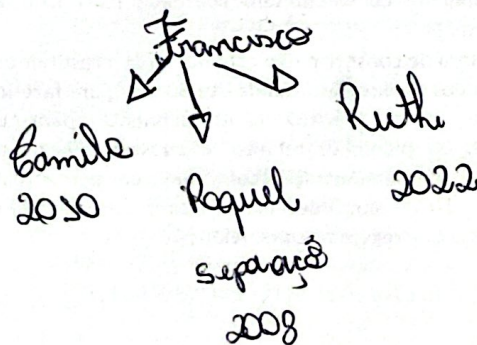 Francisco
Camila
2010
Raquel
separaçõ
2008
Ruth
2022